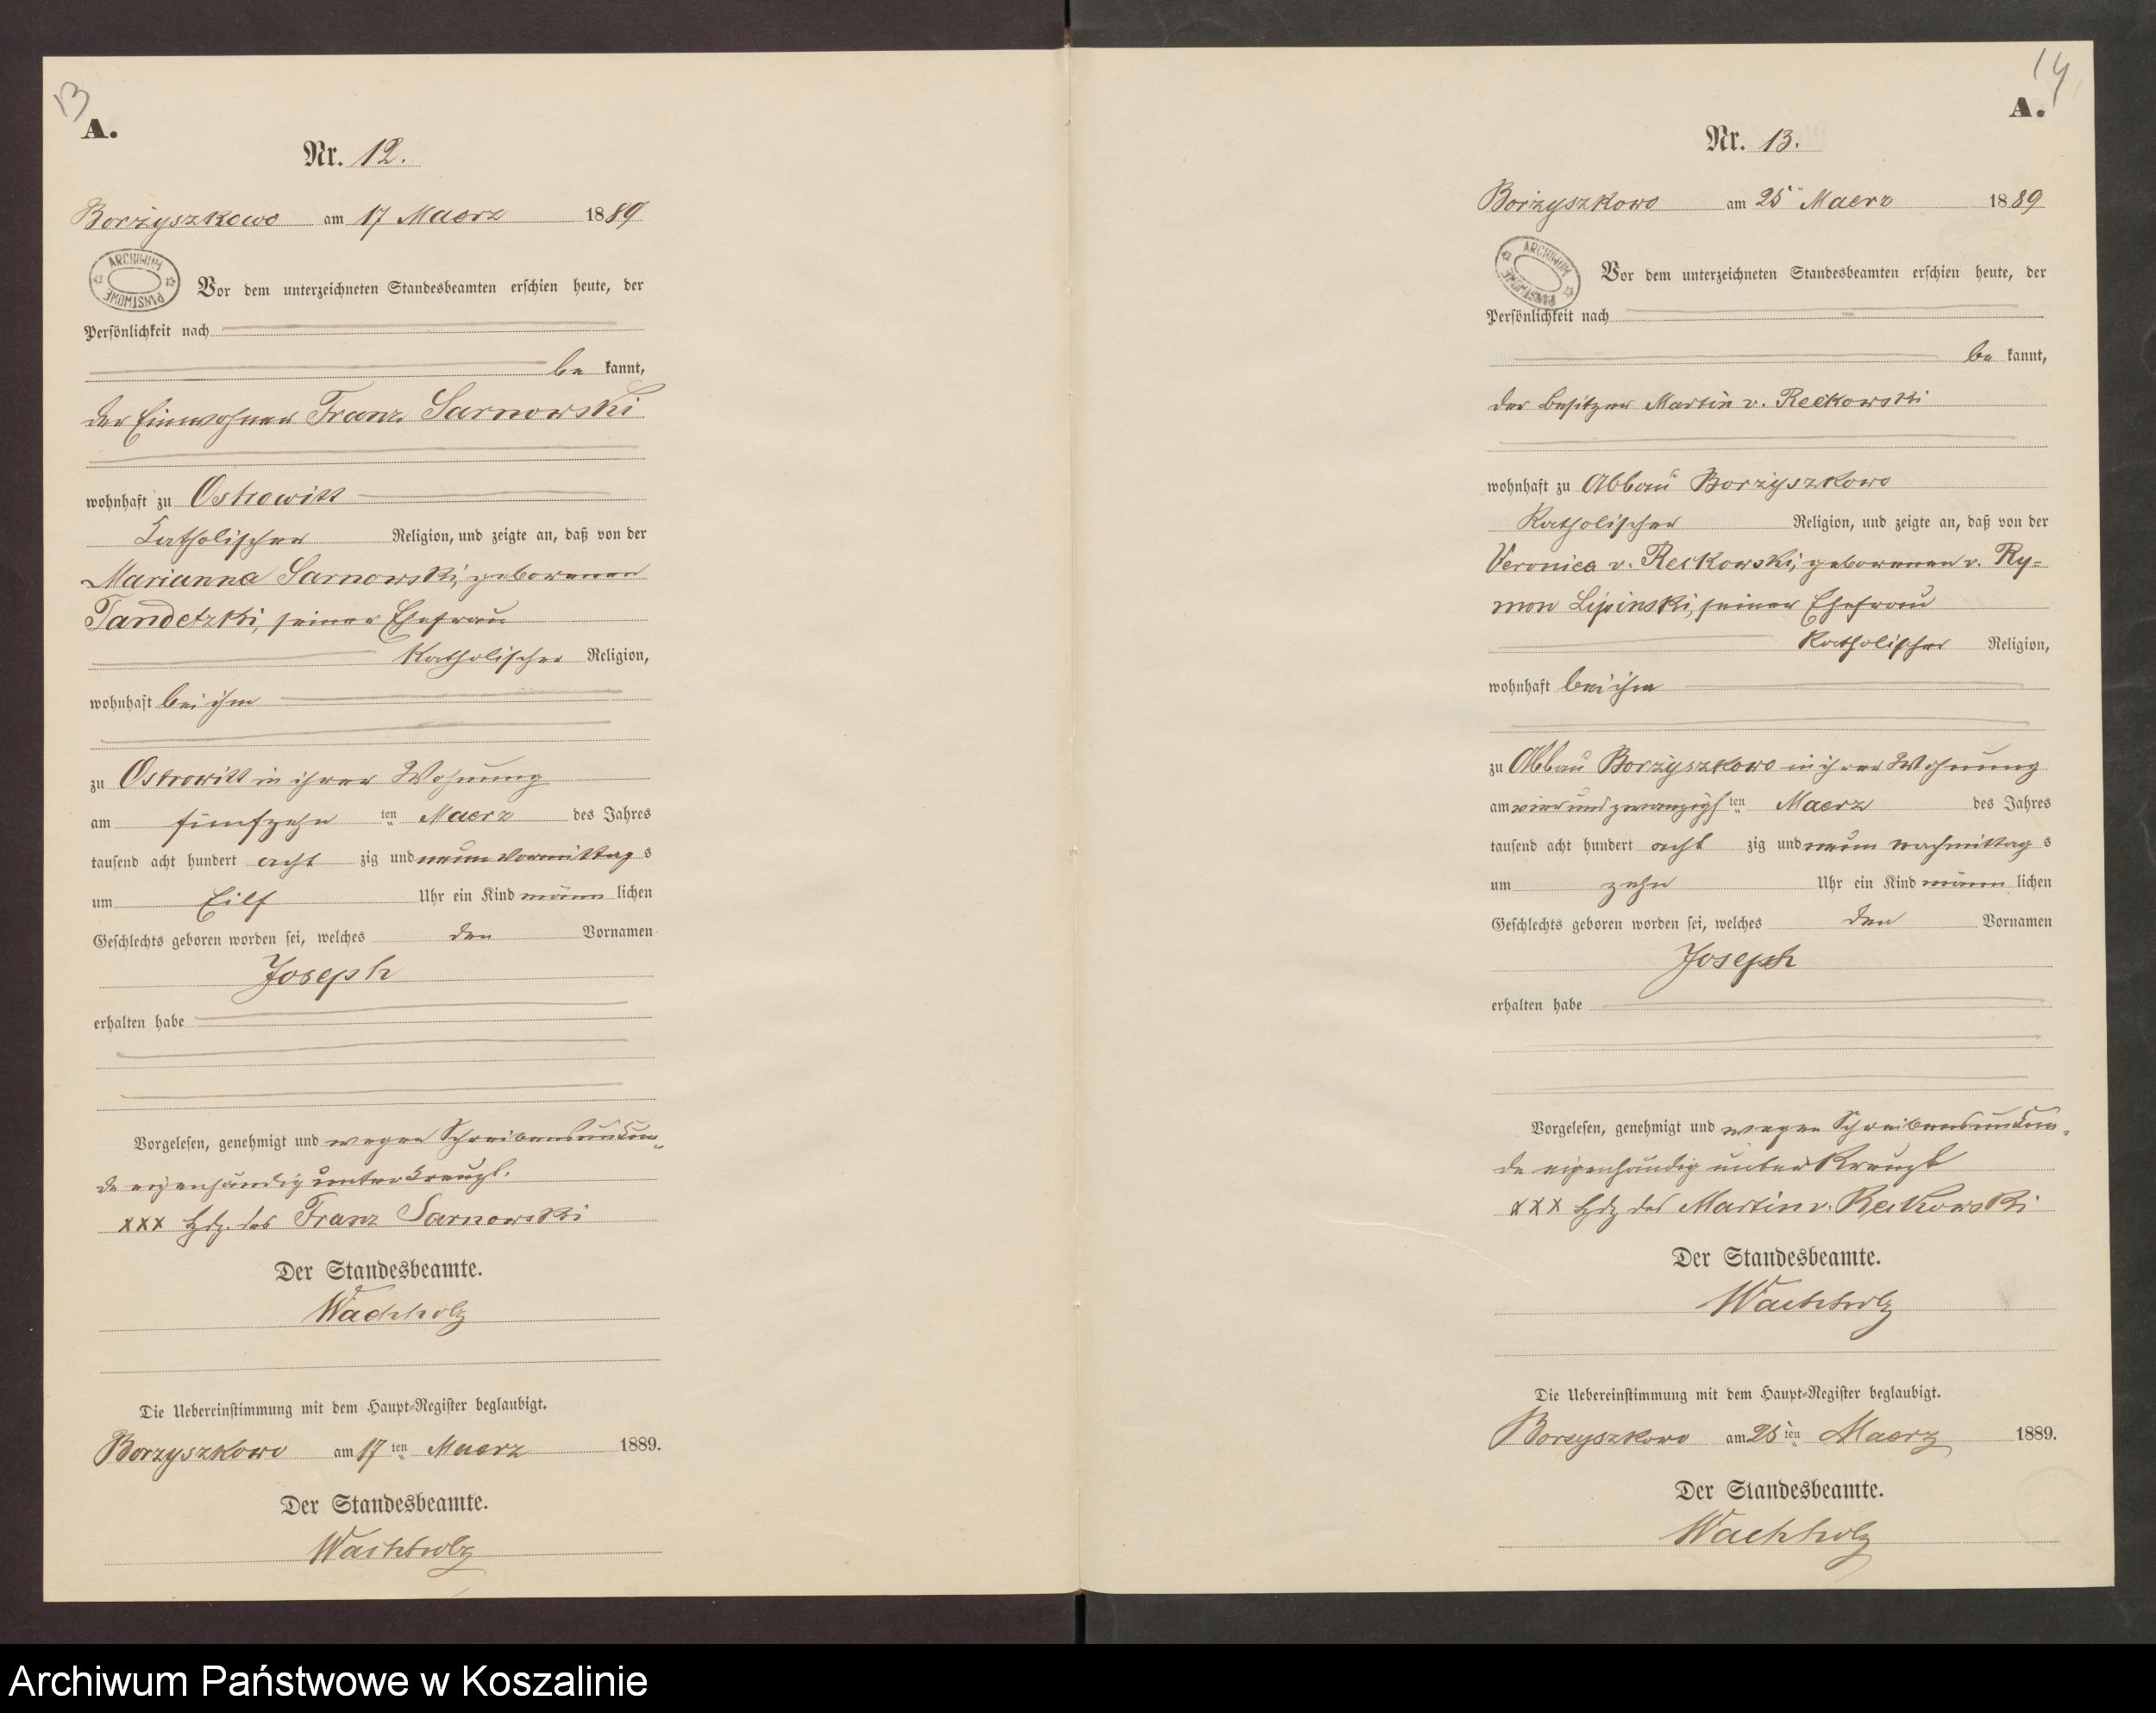 13
A.
Nr. 12.
Borzyszkowo am 17 Maerz 1889
ARCHIWUM PAŃSTWOWE
Vor dem unterzeichneten Standesbeamten erschien heute, der
Persönlichkeit nach
be kannt,
der Einwohner Franz Sarnowski
wohnhaft zu Ostrowitt
Katholischer Religion, und zeigte an, daß von der
Marianna Sarnowski, geborenen
Tandetzki, seiner Ehefrau
Katholischer Religion,
wohnhaft bei ihm
zu Ostrowitt in ihrer Wohnung
am fünfzehn ten Maerz des Jahres
tausend acht hundert acht zig und neun Vormittag s
um Eilf Uhr ein Kind männ lichen
Geschlechts geboren worden sei, welches den Vornamen
Joseph
erhalten habe
Vorgelesen, genehmigt und wegen Schreibensunkun-
de eigenhändig unterkreuzt.
XXX Hdz. des Franz Sarnowski
Der Standesbeamte.
Wachholz
Die Uebereinstimmung mit dem Haupt-Register beglaubigt.
Borzyszkowo am 17 ten Maerz 1889.
Der Standesbeamte.
Wachholz
14
A.
Nr. 13.
Borzyszkowo am 25 Maerz 1889
ARCHIWUM PAŃSTWOWE
Vor dem unterzeichneten Standesbeamten erschien heute, der
Persönlichkeit nach
be kannt,
der Besitzer Martin v. Reckowski
wohnhaft zu Abbau Borzyszkowo
Katholischer Religion, und zeigte an, daß von der
Veronica v. Reckowski, geborenen v. Ry-
mon Lipinski, seiner Ehefrau
Katholischer Religion,
wohnhaft bei ihm
zu Abbau Borzyszkowo in ihrer Wohnung
am vierundzwanzigs ten Maerz des Jahres
tausend acht hundert acht zig und neun nachmittag s
um zehn Uhr ein Kind männ lichen
Geschlechts geboren worden sei, welches den Vornamen
Joseph
erhalten habe
Vorgelesen, genehmigt und wegen Schreibensunkun-
de eigenhändig unterkreuzt
XXX Hdz des Martin v. Reckowski
Der Standesbeamte.
Wachholz
Die Uebereinstimmung mit dem Haupt-Register beglaubigt.
Borzyszkowo am 25 ten Maerz 1889.
Der Standesbeamte.
Wachholz
Archiwum Państwowe w Koszalinie